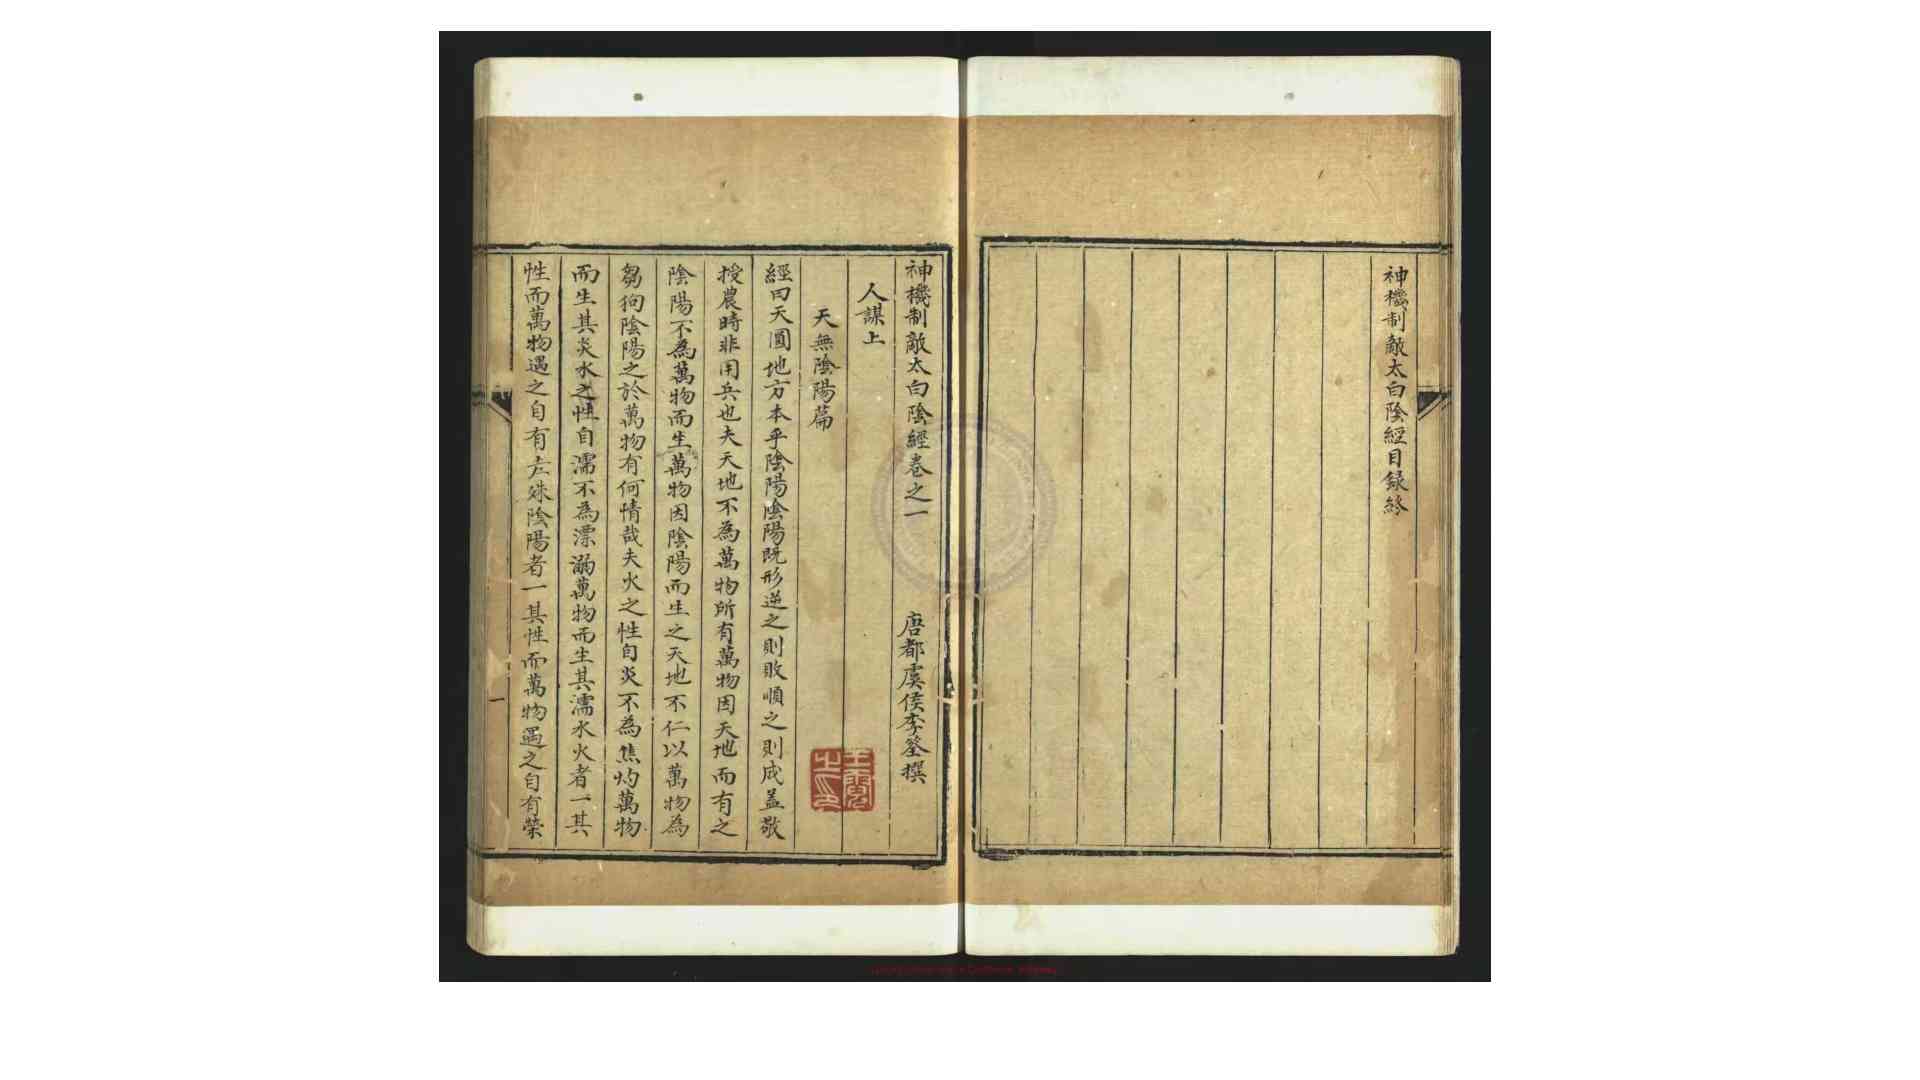 神機制敵太白陰經目録終
神機制敵太白陰經卷之一
唐都虞侯李筌撰
人謀上
天無陰陽篇
經曰天圓地方本乎陰陽陰陽既形逆之則敗順之則成盖敬
授農時非用兵也夫天地不為萬物所有萬物因天地而有之
陰陽不為萬物而生萬物因陰陽而生之天地不仁以萬物為
芻狗陰陽之於萬物有何情哉夫火之性自炎不為焦灼萬物
而生其炎水之性自濡不為漂溺萬物而生其濡水火者一其
性而萬物遇之自有差殊陰陽者一其性而萬物遇之自有榮
一